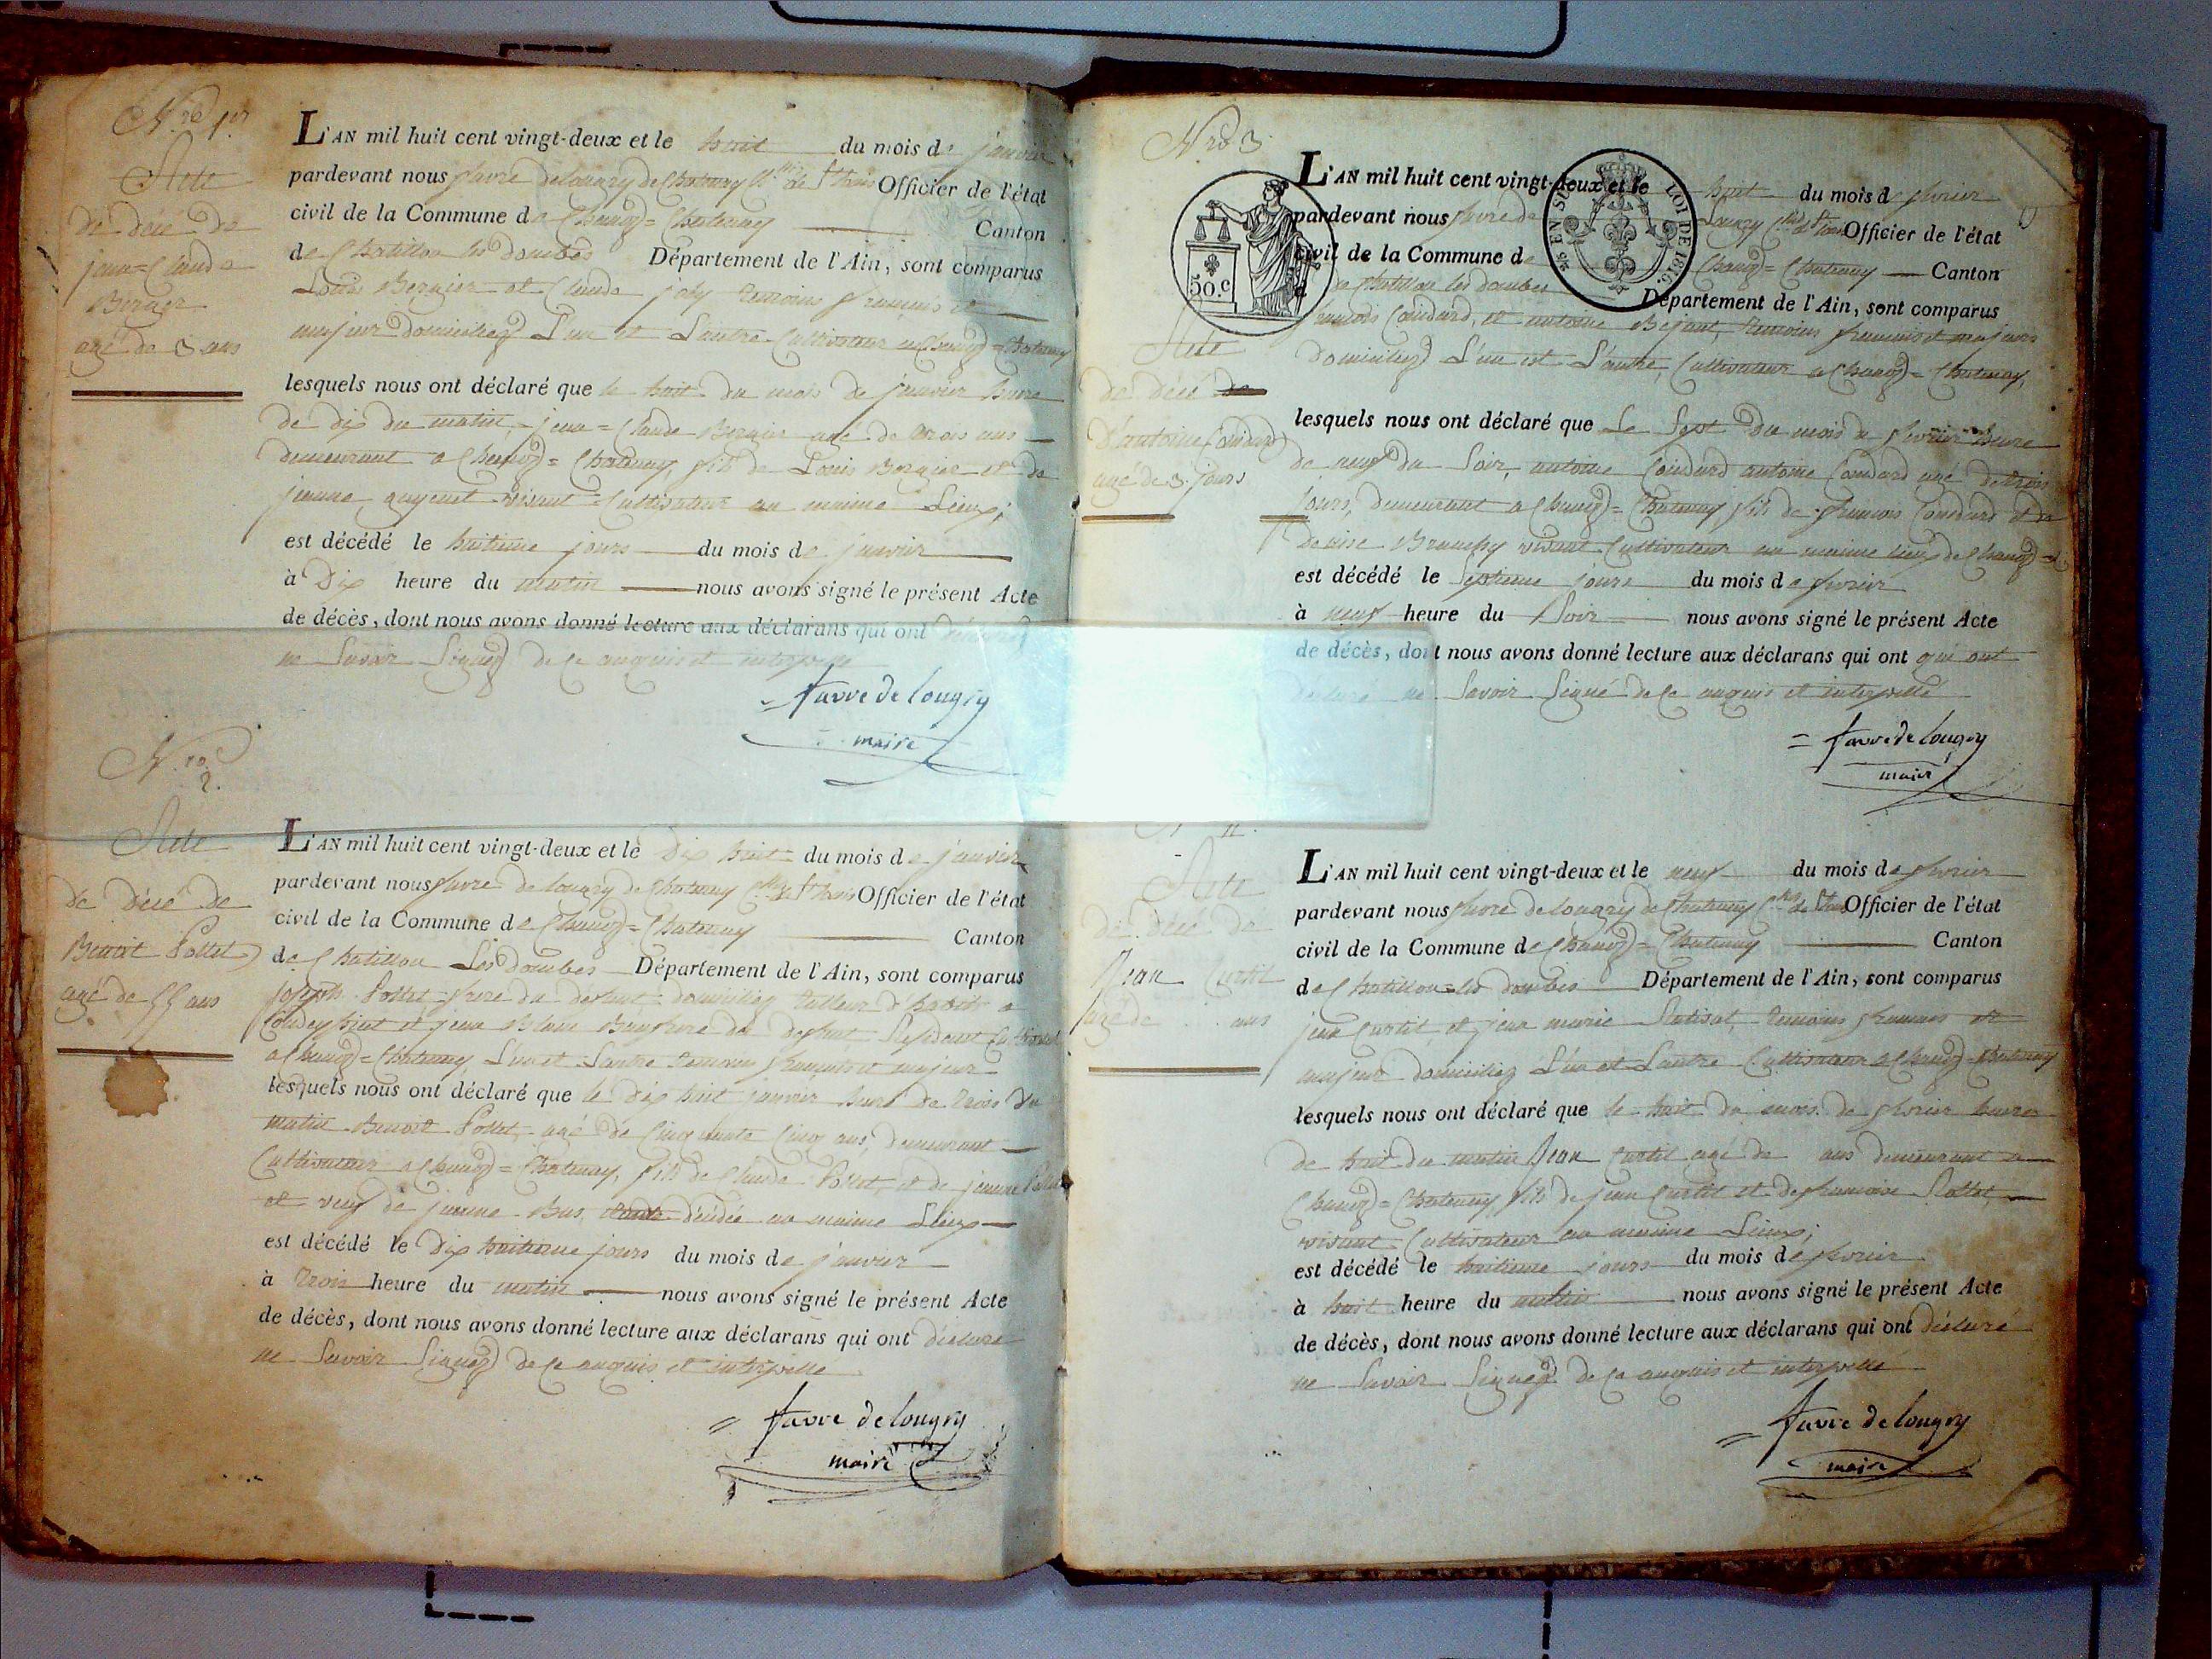 Nro 1er
Acte
de décé de
jean=Claude
Bernier
agé de 3 ans
L'AN mil huit cent vingt-deux et le huit du mois de janvier
pardevant nous favre delougry de Chatenay Officier de l'état
civil de la Commune de Chanoz=Chatenay Canton
de Chatillon les dombes Département de l'Ain, sont comparus
Louis Bernier et Claude joly temoins français et
majeur domiciliez L'un et Lautre Cultivateur a Chanoz=Chatenay
lesquels nous ont déclaré que le huit du mois de janvier heure
de dix du matin, jean=Claude Bernier agé de trois ans
demeurant a Chanoz=Chatenay, fils de Louis Bernier et de
jeanne vivant Cultivateur au maime Lieux;
est décédé le huitieme jours du mois de janvier
à Dix heure du matin nous avons signé le présent Acte
de décès, dont nous avons donné lecture aux déclarans qui ont
ne Savoir Signez de ce anquis et interpelle
favre de lougry
maire
Nro
2.
Acte
de décé de
Benoit Pollet
agé de 55 ans
L'AN mil huit cent vingt-deux et le dix huit du mois de janvier
pardevant nous favre de lougry de Chatenay Officier de l'état
civil de la Commune de Chanoz=Chatenay Canton
de Chatillon Les dombes Département de l'Ain, sont comparus
joseph Pollet frere du defunt domiciliez tailleur d'habits a
et jean Blanc du defunt
a Chanoz=Chatenay, L'un et Lautre temoins français et majeur
lesquels nous ont déclaré que le dix huit janvier heure de trois du
matin Benoit Pollet, agé de cinquante cinq ans, demeurant
Cultivateur a Chanoz=Chatenay, fils de Claude Pollet, et de jeanne
et veuf de jeanne décidée au maime Lieux
est décédé le dix huitieme jours du mois de janvier
à trois heure du matin nous avons signé le présent Acte
de décès, dont nous avons donné lecture aux déclarans qui ont déclaré
ne Savoir Signez de ce anquis et interpelle
favre de lougry
maire
Nro 3
50.c
LOI DE 1816.
Acte
de décé de
D'antoine Condard
agé de 3 jours
L'AN mil huit cent vingt-deux et le huit du mois de fevrier
pardevant nous favre de Lougry Officier de l'état
civil de la Commune de Chanoz=Chatenay Canton
de Chatillon les dombes Département de l'Ain, sont comparus
francois Condard, et antoine temoins francais et majeurs
domiciliez L'un et L'autre, Cultivateur a Chanoz=Chatenay,
lesquels nous ont déclaré que Le Sept du mois de fevrier heure
de neuf du Soir, antoine Condard antoine Condard agé de trois
jours, demeurant a Chanoz=Chatenay, fils de francois Condard et de
vivant Cultivateur au maime lieux de Chanoz=C
est décédé le Septieme jours du mois de fevrier
à neuf heure du Soir nous avons signé le présent Acte
de décès, dont nous avons donné lecture aux déclarans qui ont qui ont
déclaré ne Savoir Signé de ce anquis et interpellé
favre de lougry
maire
Acte
de décé de
Jean Curtil
agé de ans
L'AN mil huit cent vingt-deux et le neuf du mois de fevrier
pardevant nous favre delougry de Chatenay Officier de l'état
civil de la Commune de Chanoz=Chatenay Canton
de Chatillon=les dombes Département de l'Ain, sont comparus
jean Curtil, et jean marie temoins francais et
majeur domiciliez L'un et Lautre Cultivateur a Chanoz=Chatenay
lesquels nous ont déclaré que le huit du mois de fevrier heures
de huit du matin Jean Curtil agé de ans demeurant a
Chanoz=Chatenay fils de jean Curtil et de francoise
vivant Cultivateur au maime Lieux;
est décédé le huitieme jours du mois de fevrier
à huit heure du matin nous avons signé le présent Acte
de décès, dont nous avons donné lecture aux déclarans qui ont déclaré
ne Savoir Signez de ce anquis et interpellé
favre de lougry
maire